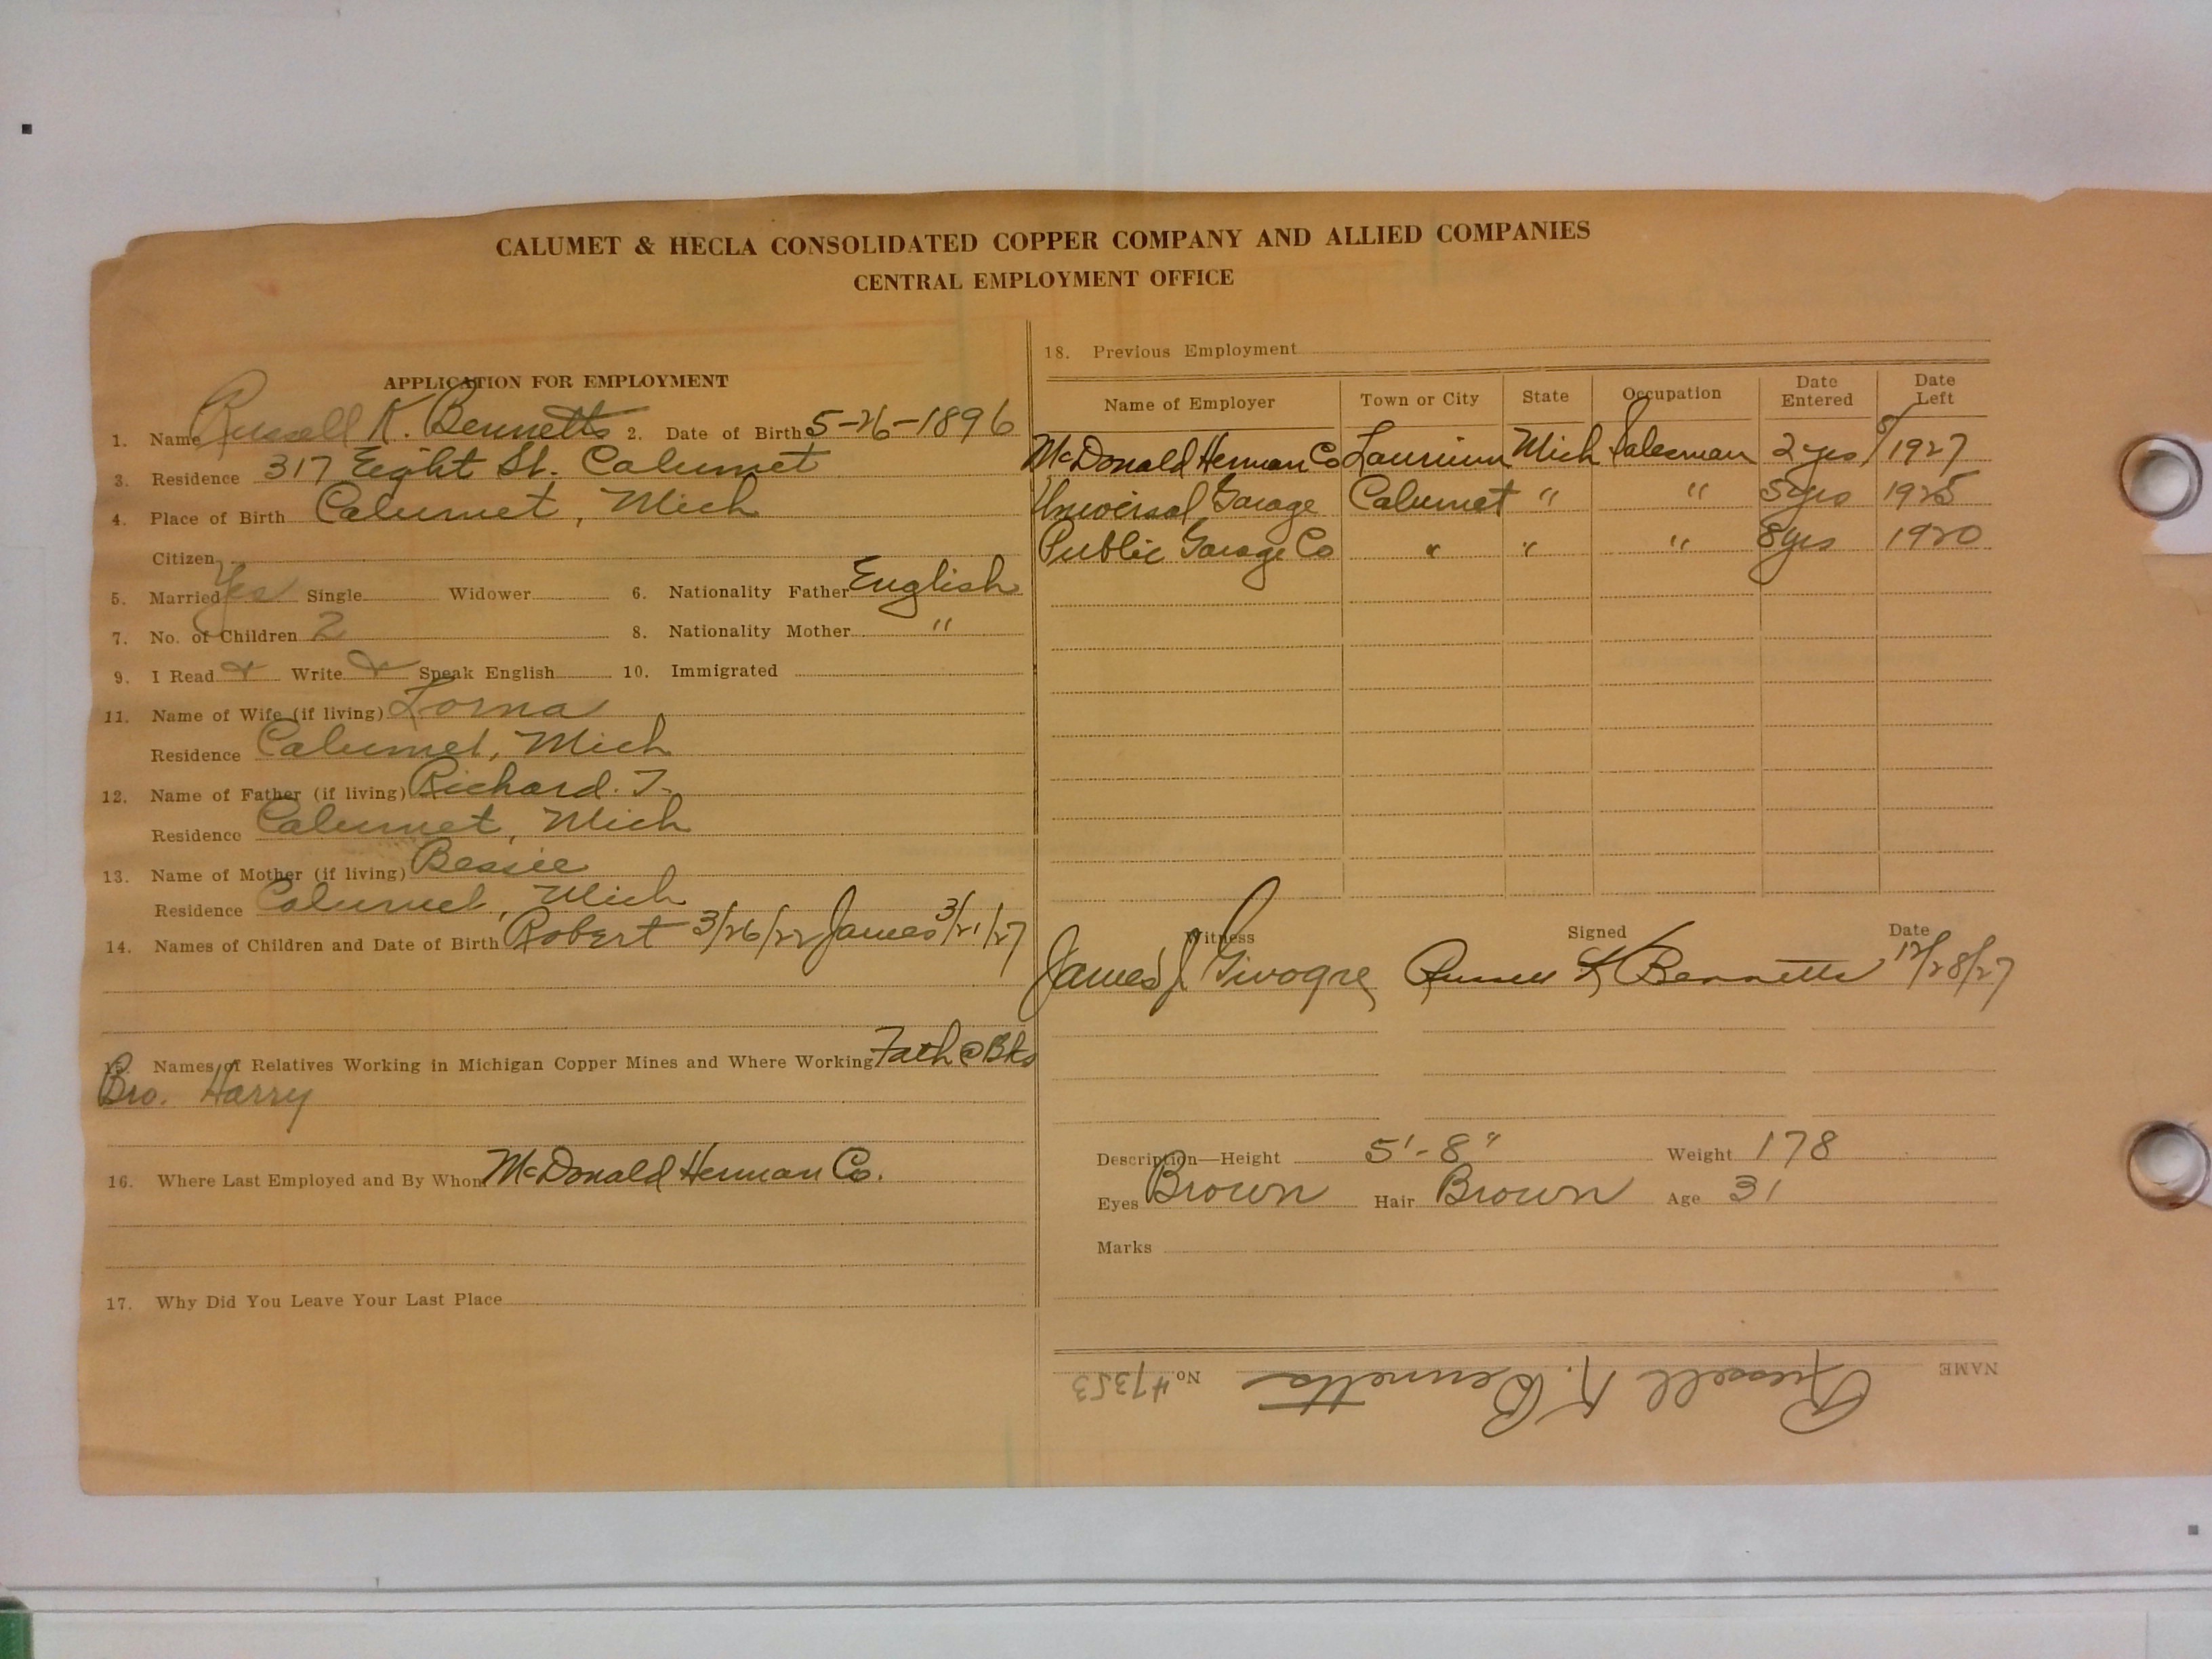 CALUMET & HECLA CONSOLIDATED COPPER COMPANY AND ALLIED COMPANIES
CENTRAL EMPLOYMENT OFFICE
APPLICATION FOR EMPLOYMENT
1. Name Russell K. Bennetts 2. Date of Birth 5-26-1896
3. Residence 317 Eight St. Calumet
4. Place of Birth Calumet, Mich
Citizen
5. Married Yes Single Widower 6. Nationality Father English
7. No. of Children 2 8. Nationality Mother "
9. I Read Write Speak English 10. Immigrated
11. Name of Wife (if living) Lorna
Residence Calumet, Mich
12. Name of Father (if living) Richard. T.
Residence Calumet, Mich
13. Name of Mother (if living) Bessie
Residence Calumet, Mich
14. Names of Children and Date of Birth Robert 3/26/22 James 3/21/27
15. Names of Relatives Working in Michigan Copper Mines and Where Working Fath @ Bks
Bro. Harry
16. Where Last Employed and By Whom McDonald Herman Co.
17. Why Did You Leave Your Last Place
18. Previous Employment
Name of Employer Town or City State Occupation Date Entered Date Left
McDonald Herman Co Laurium Mich Salesman 2 yrs 8/1927
Universal Garage Calumet " " 5 yrs 1925
Public Garage Co " " " 8 yrs 1920
Witness Signed Date
James J. Russell K Bennetts 12/28/27
Description—Height 5'-8" Weight 178
Eyes Brown Hair Brown Age 31
Marks
NAME Russell K. Bennetts No. #1353